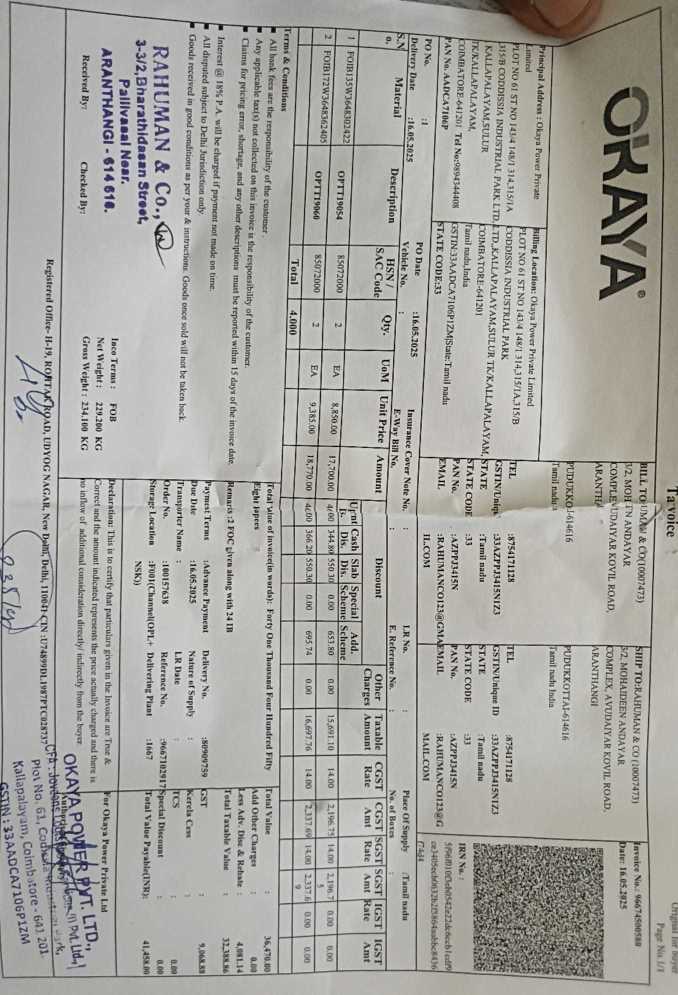 Original for Buyer
Page No. 1/1
Tax Invoice
OKAYA
Principal Address : Okaya Power Private
Limited
PLOT NO 61 ST NO 143/4 148/1 314,315/1A
315/B CODDISSIA INDUSTRIAL PARK LTD,
KALLAPALAYAM,SULUR
TK/KALLAPALAYAM,
COIMBATORE-641201 Tel No:9894344408
PAN No.AADCA7106P
Billing Location: Okaya Power Private Limited
PLOT NO 61 ST NO 143/4 148/1 314,315/1A,315/B
CODDISSIA INDUSTRIAL PARK
LTD.,KALLAPALAYAM,SULUR TK/KALLAPALAYAM,
COIMBATORE-641201
Tamil nadu,India
GSTIN:33AADCA7106P1ZM|State:Tamil nadu
STATE CODE:33
BILL TO: & CO(10007473)
3/2, MOH N ANDAYAR
COMPLE UDAIYAR KOVIL ROAD,
ARANTH
PUDUKKO -614616
Tamil nadu
TEL :8754171128
GSTIN/Uniq :33AZPPJ3415N1Z3
STATE :Tamil nadu
STATE CODE :33
PAN No. :AZPPJ3415N
EMAIL :RAHUMANCO123@GMA
IL.COM
SHIP TO:RAHUMAN & CO (10007473)
3/2, MOHAIDEEN ANDAYAR
COMPLEX, AVUDAIYAR KOVIL ROAD,
ARANTHANGI
PUDUKKOTTAI-614616
Tamil nadu India
TEL :8754171128
GSTIN/Unique ID :33AZPPJ3415N1Z3
STATE :Tamil nadu
STATE CODE :33
PAN No. :AZPPJ3415N
EMAIL :RAHUMANCO123@G
MAIL.COM
Invoice No.: 96674500580
Date: 16.05.2025
IRN No. :
PO No. :1
PO Date :16.05.2025
Insurance Cover Note No. :
L.R No. :
Place Of Supply :Tamil nadu
Delivery Date :16.05.2025
Vehicle No. :
E-Way Bill No. :
E. Reference No. :
No. of Boxes :
S.N o. Material Description HSN / SAC Code Qty. UoM Unit Price Amount Discount Other Charges Taxable Amount CGST Rate CGST Amt SGST Rate SGST Amt IGST Rate IGST Amt
Cash Dis. Slab Dis. Special Scheme Add. Scheme
1 FOIB135W3648302422 OPTT19054 85072000 2 EA 8,850.00 17,700.00 4.00 344.80 550.30 0.00 653.80 0.00 15,691.10 14.00 2,196.75 14.00 2,196.7 5 0.00 0.00
2 FOIB172W3648362405 OPTT19060 85072000 2 EA 9,385.00 18,770.00 4.00 366.20 550.30 0.00 695.74 0.00 16,697.76 14.00 2,337.69 14.00 2,337.6 9 0.00 0.00
Total 4.000
Terms & Conditions
All bank fees are the responsibility of the customer .
Any applicable tax(s) not collected on this invoice is the responsibility of the customer.
Claims for pricing error, shortage, and any other descriptions must be reported within 15 days of the invoice date.
Interest @ 18% P.A. will be charged if payment not made on time.
All disputed subject to Delhi Jurisdiction only.
Goods received in good conditions as per your & instructions. Goods once sold will not be taken back.
Total Value of invoice(in words): Forty One Thousand Four Hundred Fifty
Eight rupees
Remarks :2 FOC given along with 24 IB
Payment Terms :Advance Payment
Due Date :16.05.2025
Transporter Name :
Order No. :100157638
Storage Location :FI01(Channel(OPL+
NSK))
Delivery No. :80909759
Nature of Supply :
LR Date :
Reference No. :9667102917
Delivering Plant :1667
Total Value : 36,470.00
Add Other Charges : 0.00
Less Adv. Disc & Rebate : 4,081.14
Total Taxable Value : 32,388.86
GST : 9,068.88
Kerela Cess :
TCS : 0.00
Special Discount : 0.00
Total Value Payable(INR): 41,458.00
RAHUMAN & Co.,
3-3/2,Bharathidasan Street,
Pallivasal Near.
ARANTHANGI - 614 616.
Received By: Checked By:
Inco Terms : FOB
Net Weight : 229.200 KG
Gross Weight : 234.100 KG
Declaration: This is to certify that particulars given in the Invoice are True &
Correct and the amount indicated represents the price actually charged and there is
no inflow of additional consideration directly/ indirectly from the buyer.
For Okaya Power Private Ltd
OKAYA POWER PVT. LTD.,
Plot No. 61,
Kallapalayam, Coimbatore - 641 201.
GSTIN : 33AADCA7106P1ZM
Registered Office- H-19, ROHTAK ROAD, UDYOG NAGAR, New Delhi, Delhi, 110041-CIN :U74899DL1987PTC028737